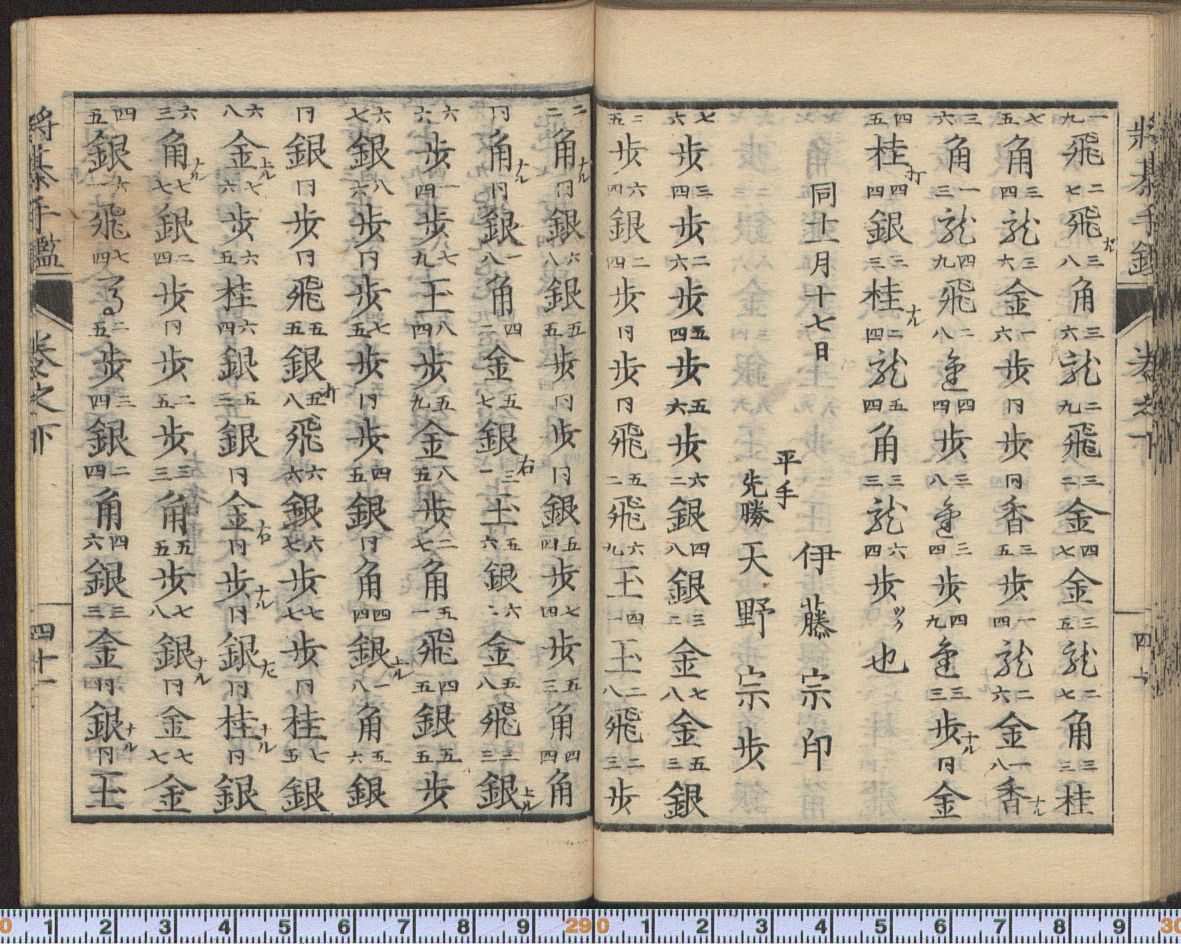 将棊手鑑
巻之下
一九飛二七飛ナル三八角三六龍二九飛三二金四七金三五龍二七角三三桂
七五角三四龍三六金一六歩同歩同香三五歩一四龍二六金一八香ナル
三六角一三龍四九飛二八 四四歩三八 三四歩四九 三三歩ナル同金
四五桂打四四銀三三桂ナル二四龍五四角三三龍六四歩ツメ也
同十一月十七日 伊藤宗印
平手
先勝 天野宗歩
七六歩三四歩二六歩五四歩五六歩六二銀四八銀三二金七八金五三銀
二五歩六四銀二四歩同歩同飛五二飛六九玉四一玉二八飛二三歩
二二角ナル同銀六八銀五五歩同歩同銀五四歩七四歩五三角四四角
同角ナル同銀一八角四二金五七銀右三一玉五六銀六二金五八飛三三銀上ル
六六歩一四歩七九玉八四歩五九金八五歩二七角五一飛四五銀五五歩
六七銀八六歩同歩七五歩同歩四五銀同角四四銀上ル一八角五六銀
同銀同歩同飛五五銀打五八飛六六銀六七歩七七歩同桂七五銀
六八金上ル七六歩六五桂六四銀五三銀同金右同歩ナル同銀左同桂ナル同銀
六三角ナル七七銀二四歩同歩二五歩三三角五五歩七八銀ナル同金七七金
四五銀六一飛七四馬二五歩三四銀二四角四六銀三三金同銀ナル同玉
将棊手鑑
巻之下
四十一